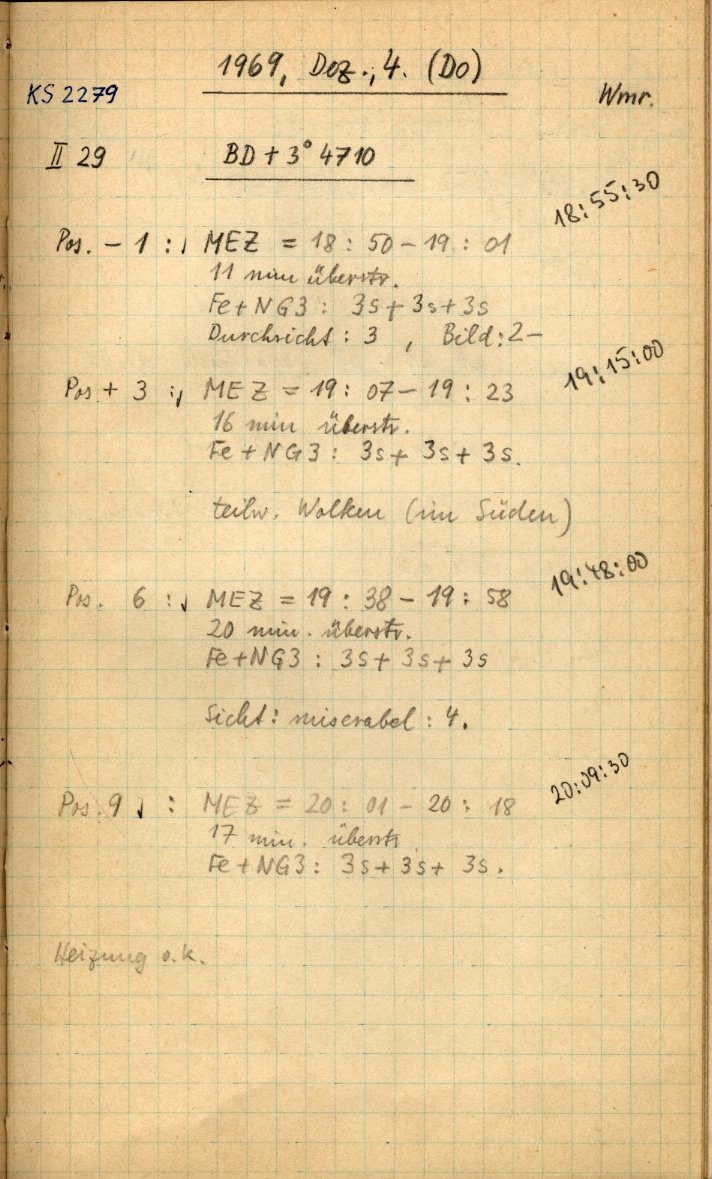 1969, Dez., 4. (Do)
KS 2279 Wmr.
II 29 BD + 3° 4710
18:55:30
Pos. - 1 : MEZ = 18 : 50 - 19 : 01
11 min überstr.
Fe + NG3 : 3s + 3s + 3s
Durchsicht : 3 , Bild : 2-
19:15:00
Pos. + 3 : MEZ = 19 : 07 - 19 : 23
16 min überstr.
Fe + NG3 : 3s + 3s + 3s.
teilw. Wolken (im Süden)
19:48:00
Pos. 6 : MEZ = 19 : 38 - 19 : 58
20 min. überstr.
Fe + NG3 : 3s + 3s + 3s
Sicht : miserabel : 4.
20:09:30
Pos. 9 : MEZ = 20 : 01 - 20 : 18
17 min. überstr.
Fe + NG3 : 3s + 3s + 3s.
Heizung o.k.